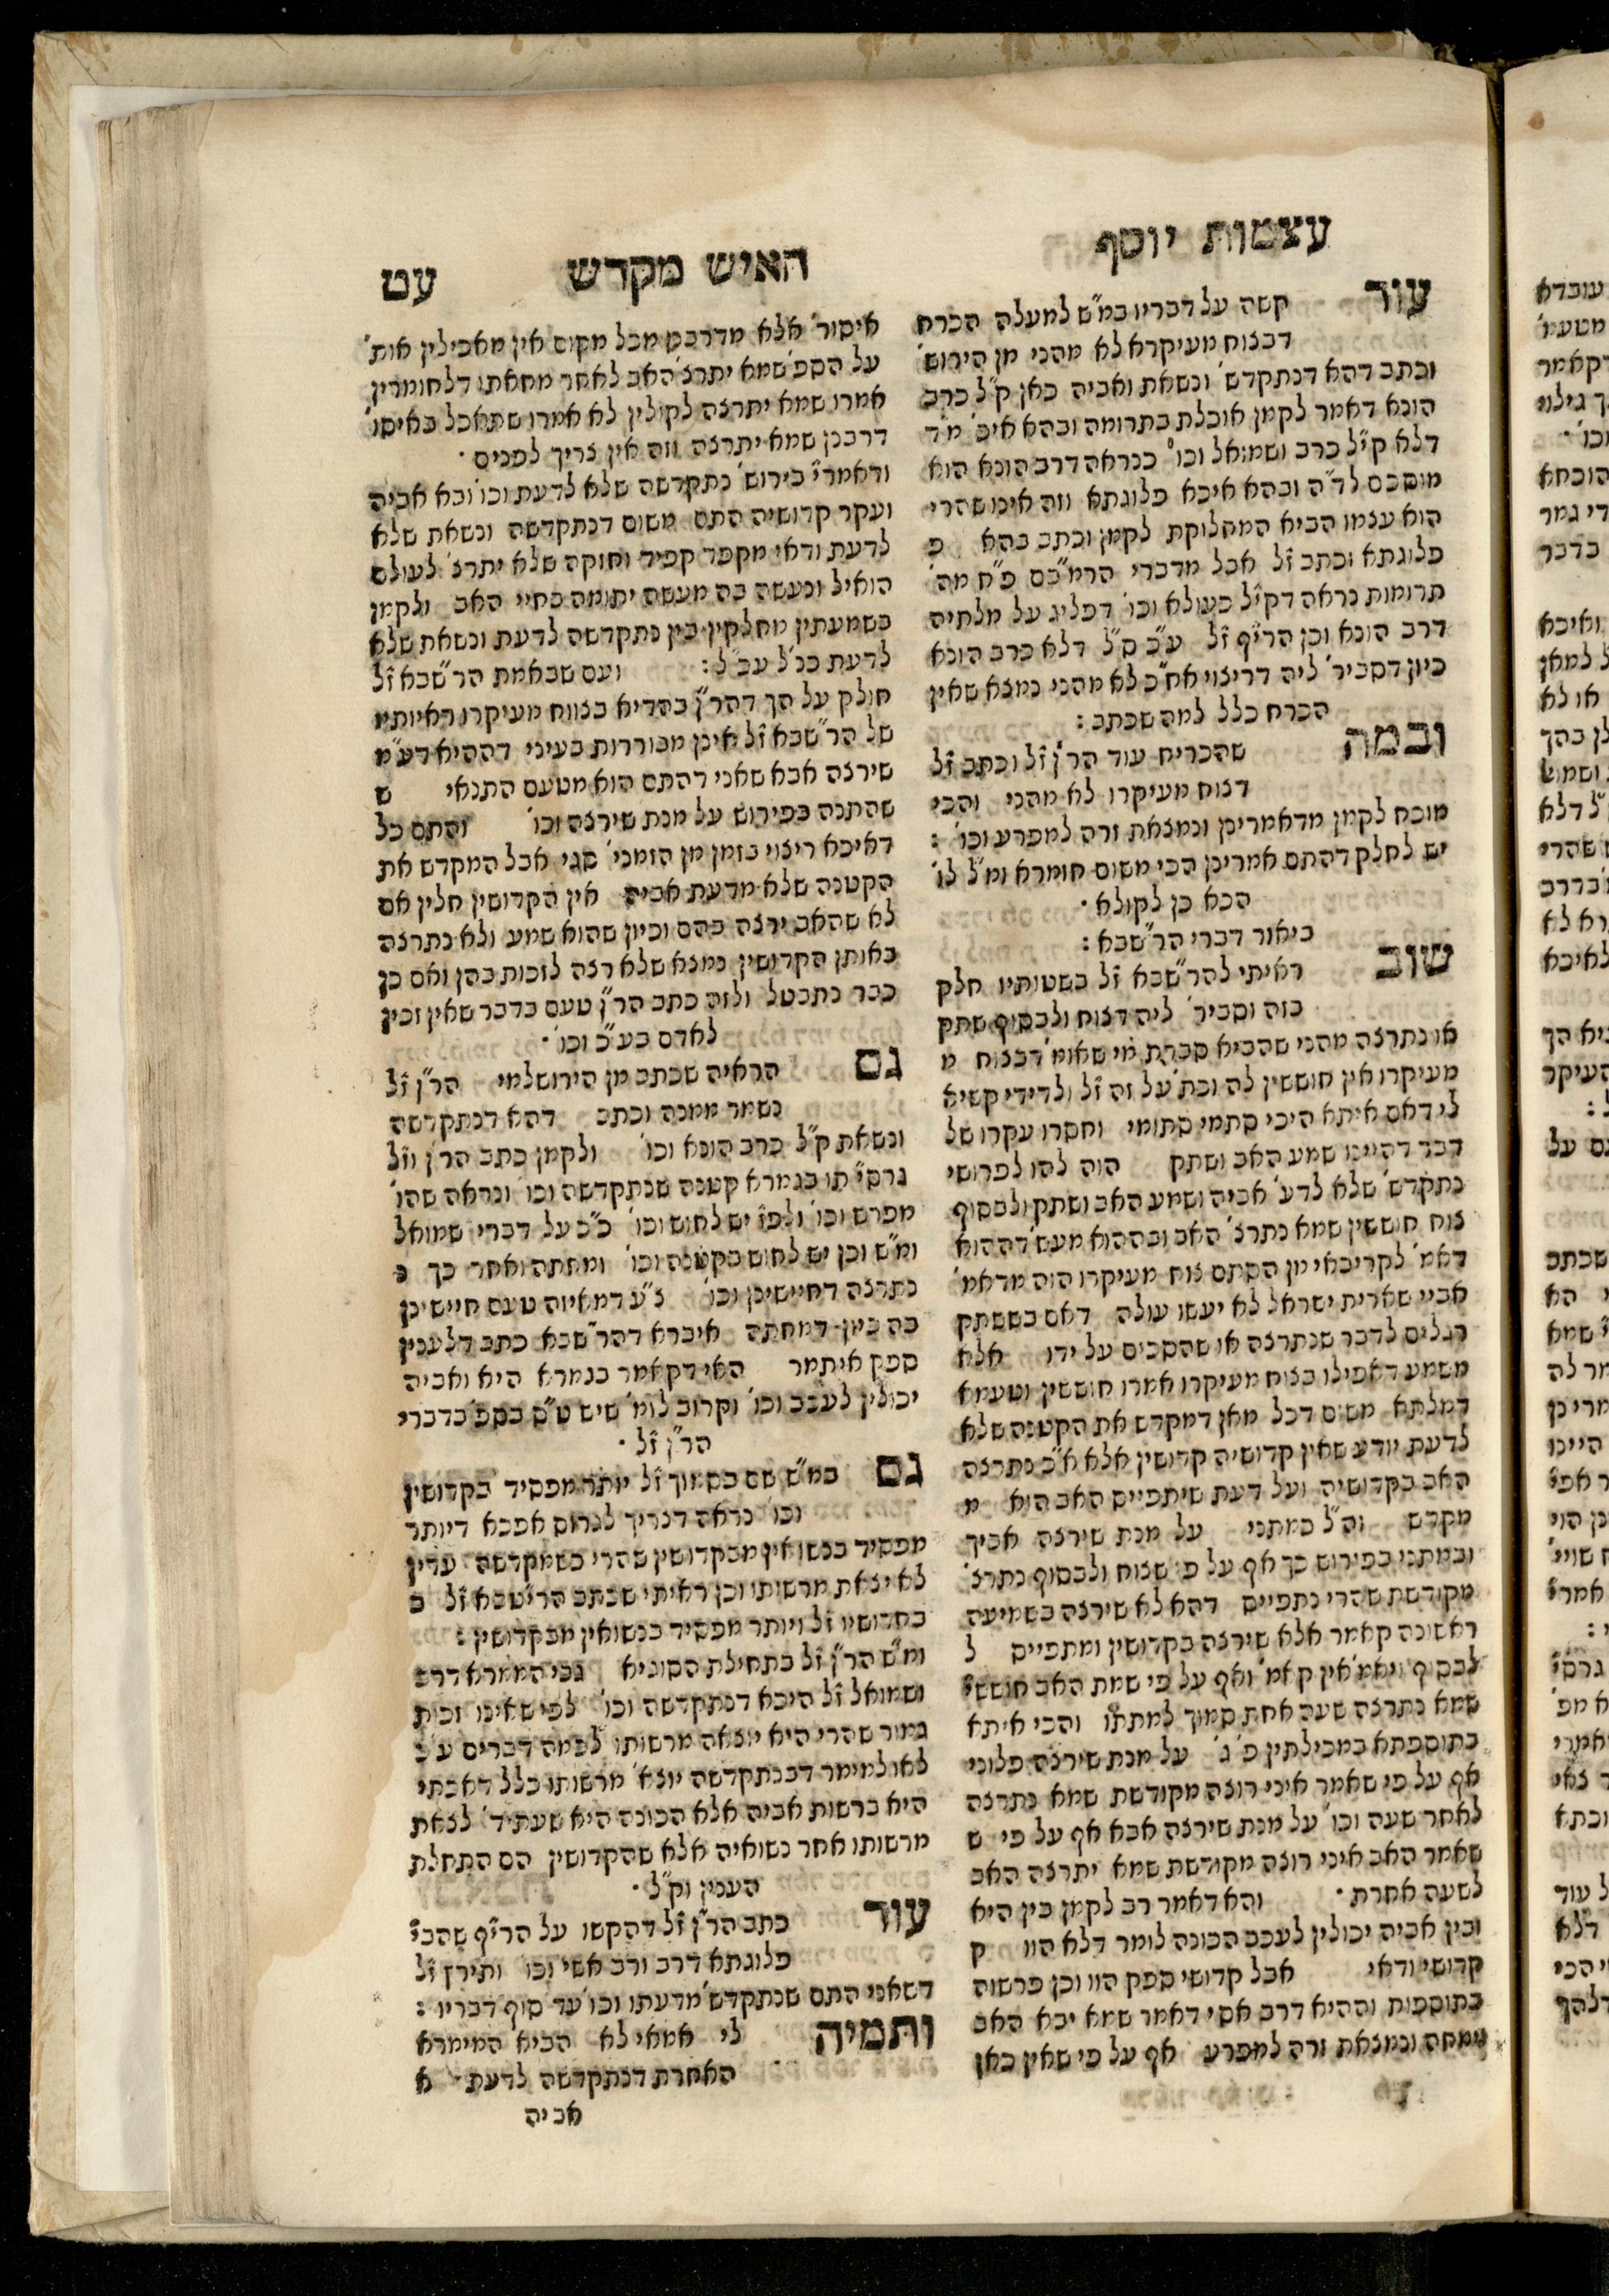 עצמות יוסף
האיש מקדש
עט
עוד קשה על דבריו במ"ש למעלה הכרח
דבצוח מעיקרא לא מהני מן הירוש'
וכתב דהא דנתקדש' ונשאת ואביה כאן ק"ל כרב
הונא דאמר לקמן אוכלת בתרומה ובהא איכ' מ"ד
דלא ק"ל כרב ושמואל וכו' כנראה דרב הונא הוא
מוסכם לד"ה ובהא איכא פלוגתא וזה אינו שהרי
הוא עצמו הביא המחלוקת לקמן וכתב בהא פ
פלוגתא וכתב ז"ל אבל מדברי הרמ"בם פ"ח מה'
תרומות נראה דק"ל כעולא וכו' דפליג על מלתיה
דרב הונא וכן הרי"ף ז"ל ע"כ ס"ל דלא כרב הונא
כיון דסביר' ליה דריצוי אח"כ לא מהני נמצא שאין
הכרח כלל למה שכתב :
ובמה שהכריח עוד הר"ן ז"ל וכתב ז"ל
דצוח מעיקרו לא מהני והכי
מוכח לקמן מדאמרינן ונמצאת זרה למפרע וכו' :
יש לחלק דהתם אמרינן הכי משום חומרא ומ"ל לו'
הכא כן לקולא ·
ביאור דברי הר"שבא :
שוב ראיתי להר"שבא ז"ל בשטותיו חלק
בזה וסביר' ליה דצוח ולבסוף שתק
או נתרצה מהני שהביא סברת מי שאומ' דבצוח מ
מעיקרו אין חוששין לה וכת' על זה ז"ל ולדידי קשיא
לי דאם איתא היכי סתמי סתומי וחסרו עקרו של
דבר דהיינו שמע האב ושתק הוה להו לפרושי
נתקדש' שלא לדע' אביה ושמע האב ושתק ולבסוף
צוח חוששין שמא נתרצ' האב ובההוא מעש' דההוא
דאמ' לקריבאי מן הסתם צוח מעיקרו הוה מדאמ'
אביי שארית ישראל לא יעשו עולה דאם בששתק
רגלים לדבר שנתרצה או שהסכים על ידו אלא
משמע דאפילו בצוח מעיקרו אמרו חוששין וטעמא
דמלתא משום דכל מאן דמקדש את הקטנה שלא
לדעת יודע שאין קדושיה קדושין אלא א"כ נתרצה
האב בקדושיה ועל דעת שיתפייס האב הוא מ
מקדש וה"ל כמתני על מנת שירצה אביך
ובמתני בפירוש כך אף על פי שצוח ולבסוף נתרצ'
מקודשת שהרי נתפייס דהא לא שירצה בשמיעה
ראשונה קאמר אלא שירצה בקדושין ומתפייס ל
לבסוף ויאמ' אין קאמ' ואף על פי שמת האב חוששי'
שמא נתרצה שעה אחת סמוך למתתו והכי איתא
בתוספתא במכילתין פ' ג' על מנת שירצה פלוני
אף על פי שאמר איני רוצה מקודשת שמא נתרצה
לאחר שעה וכו' על מנת שירצה אבא אף על פי ש
שאמר האב איני רוצה מקודשת שמא יתרצה האב
לשעה אחרת · והא דאמר רב לקמן בין היא
ובין אביה יכולין לעכב הכונה לומר דלא הוו ק
קדושי ודאי אבל קדושי ספק הוו וכן פרשוה
בתוספות וההיא דרב אסי דאמר שמא יבא האב
וימחה ונמצאת זרה למפרע אף על פי שאין כאן
איסור' אלא מדרבנן מכל מקום אין מאכילין אות'
על הספ' שמא יתרצ' האב לאחר מחאתו דלחומרין
אמרו שמא יתרצה לקולין לא אמרו שתאכל באיסו'
דרבנן שמא יתרצה וזה אין צריך לפנים ·
ודאמרי' בירוש' נתקדשה שלא לדעת וכו' ובא אביה
ועקר קדושיה התם משום דנתקדשה ונשאת שלא
לדעת ודאי מקפד קפיד וחזקה שלא יתרצ' לעולם
הואיל ונעשה בה מעשה יתומה בחיי האב ולקמן
בשמעתין מחלקין בין נתקדשה לדעת ונשאת שלא
לדעת כנ"ל עכ"ל : ועם שבאמת הר"שבא ז"ל
חולק על הך דהר"ן בהדיא בצווח מעיקרו ראיותיו
של הר"שבא ז"ל אינן מבוררות בעיני דההיא דע"מ
שירצה אבא שאני דהתם הוא מטעם התנאי ש
שהתנה בפירוש על מנת שירצה וכו' והתם כל
דאיכא ריצוי בזמן מן הזמני' סגי אבל המקדש את
הקטנה שלא מדעת אביה אין הקדושין חלין אם
לא שהאב ירצה בהם וכיון שהוא שמע ולא נתרצה
באותן הקדושין נמצא שלא רצה לזכות בהן ואם כן
כבר נתבטל ולזה כתב הר"ן טעם בדבר שאין זכין
לאדם בע"כ וכו' ·
גם הראיה שכתב מן הירושלמי הר"ן ז"ל
נשמר ממנה וכתב דהא דנתקדשה
ונשאת ק"ל כרב הונא וכו' ולקמן כתב הר"ן וז"ל
גרסי' תו בגמרא קטנה שנתקדשה וכו' ונראה שהו'
מפרש וכו' ולפ"ז יש לחוש וכו' כ"כ על דברי שמואל
ומ"ש וכן יש לחוש בקטנה וכו' ומחתה ואחר כך נ
נתרצה דחיישינן וכו' צ"ע דמאיזה טעם חיישינן
בה כיון דמחתה איברא דהר"שבא כתב דלענין
ספק איתמר האי דקאמר בגמרא היא ואביה
יכולין לעכב וכו' וקרוב לומ' שיש ט"ס בספ' בדברי
הר"ן ז"ל ·
גם במ"ש שם בסמוך ז"ל יותר מפסיד בקדושין
וכו' נראה דצריך לגרוס אפכא דיותר
מפסיד בנשואין מבקדושין שהרי כשמקדשה עדין
לא יצאת מרשותו וכן ראיתי שכתב הריטבא ז"ל ב
בחדושיו ז"ל ויותר מפסיד בנשואין מבקדושין :
ומ"ש הר"ן ז"ל בתחילת הסוגיא גבי המימרא דרב
ושמואל ז"ל היכא דנתקדשה וכו' לפי שאינו זכות
גמור שהרי היא יוצאה מרשותו לכמה דברים ע"כ
לאו למימר דבנתקדשה יוצא' מרשותו כלל דאכתי
היא ברשות אביה אלא הכונה היא שעתיד' לצאת
מרשותו אחר נשואיה אלא שהקדושין הם התחלת
הענין וק"ל ·
עוד כתב הר"ן ז"ל דהקשו על הרי"ף שהבי'
פלוגתא דרב ורב אשי וכו' ותירץ ז"ל
דשאני התם שנתקדש' מדעתו וכו' עד סוף דבריו :
ותמיה לי אמאי לא הביא המימרא
האחרת דנתקדשה לדעת א
אביה